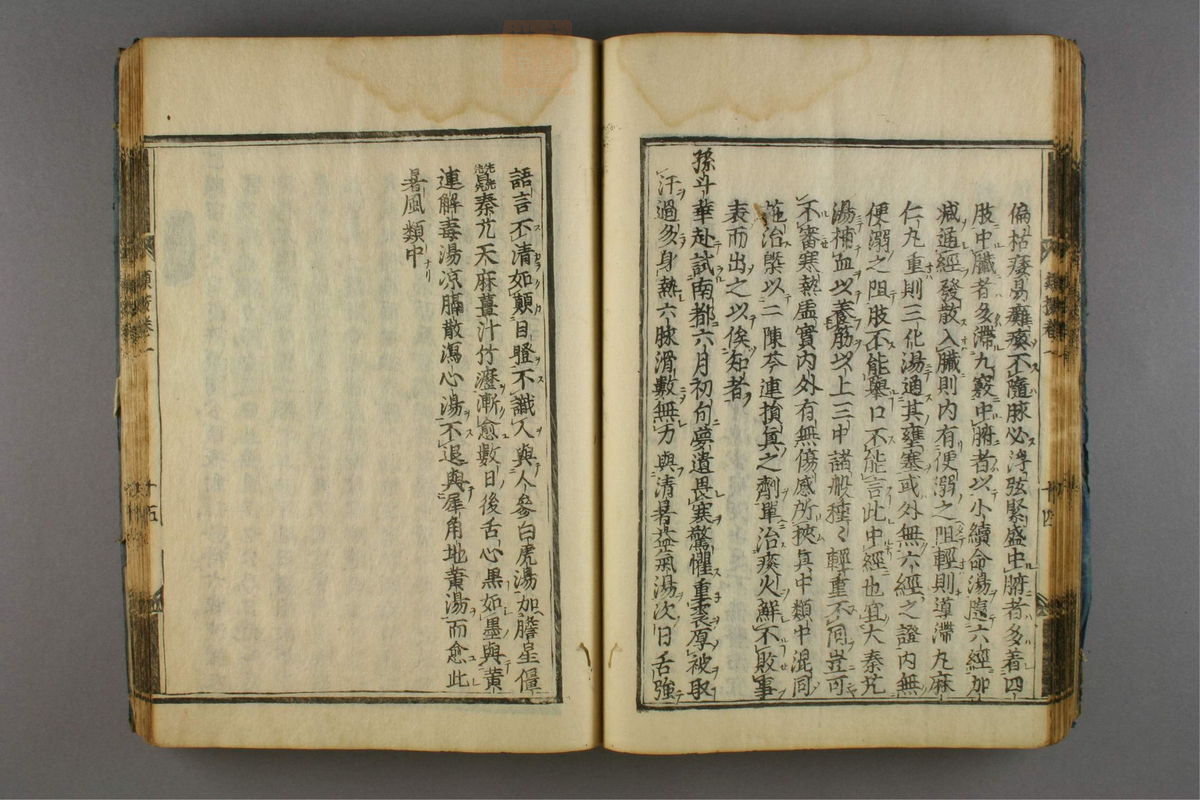 偏枯痿易癱瘓不隨脉必浮弦緊盛中腑者多着四
肢中臟者多滯九竅中腑者以小續命湯隨六經加
减通經發散入臟則内有便溺之阻輕則導滯丸麻
仁丸重則三化湯通其壅塞或外無六經之證内無
便溺之阻肢不能舉口不能言此中經也宜大秦艽
湯補血以養筋以上三中諸般種〻輕重不同豈可
不審寒熱虛實内外有無傷感所挾真中類中混同
施治槩以二陳芩連損真之劑單治痰火鮮不敗事
表而出之以俟知者
孫斗華赴試南都六月初旬夢遺畏寒驚懼重裘厚被取
汗過多身熱六脉滑數無力與清暑益氣湯次日舌強
語言不清如顛目瞪不識人與人參白虎湯加膽星僵
蠶秦艽天麻薑汁竹瀝漸愈數日後舌心黑如墨與黄
連解毒湯凉膈散瀉心湯不退與犀角地黄湯而愈此
暑風類中
卷一
十四
卷一
十五